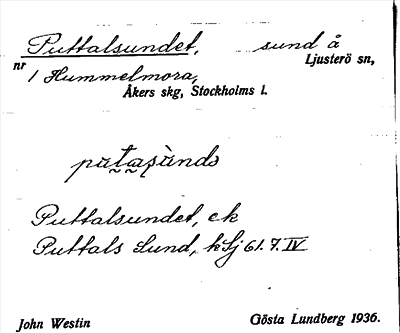 Puttalsundet, sund å
nr Ljusterö sn,
1 Hummelmora,
Åkers skg, Stockholms l.
Puttalsundet, ek
Puttals Sund, kSj 61.7.IV
John Westin Gösta Lundberg 1936.